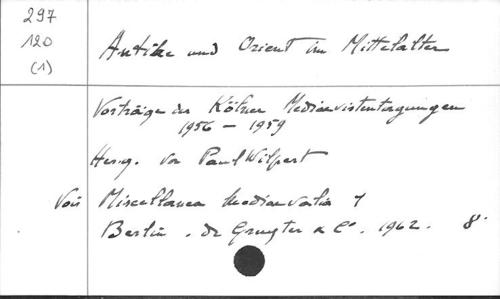 297
120
(1)
Antike und Orient im Mittelalter
Vorträge der Kölner Mediaevistentagungen
1956 - 1959
Hersg. von Paul Wilpert
Voir Miscellanea Mediaevalia 1
Berlin . de Gruyter & C°. 1962. 8°